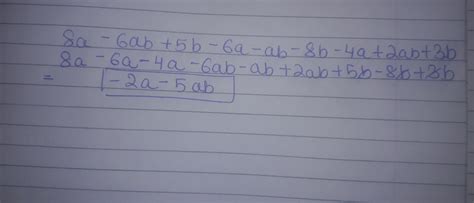 8a - 6ab + 5b - 6a - ab - 8b - 4a + 2ab + 3b
8a - 6a - 4a - 6ab - ab + 2ab + 5b - 8b + 3b
= -2a - 5ab